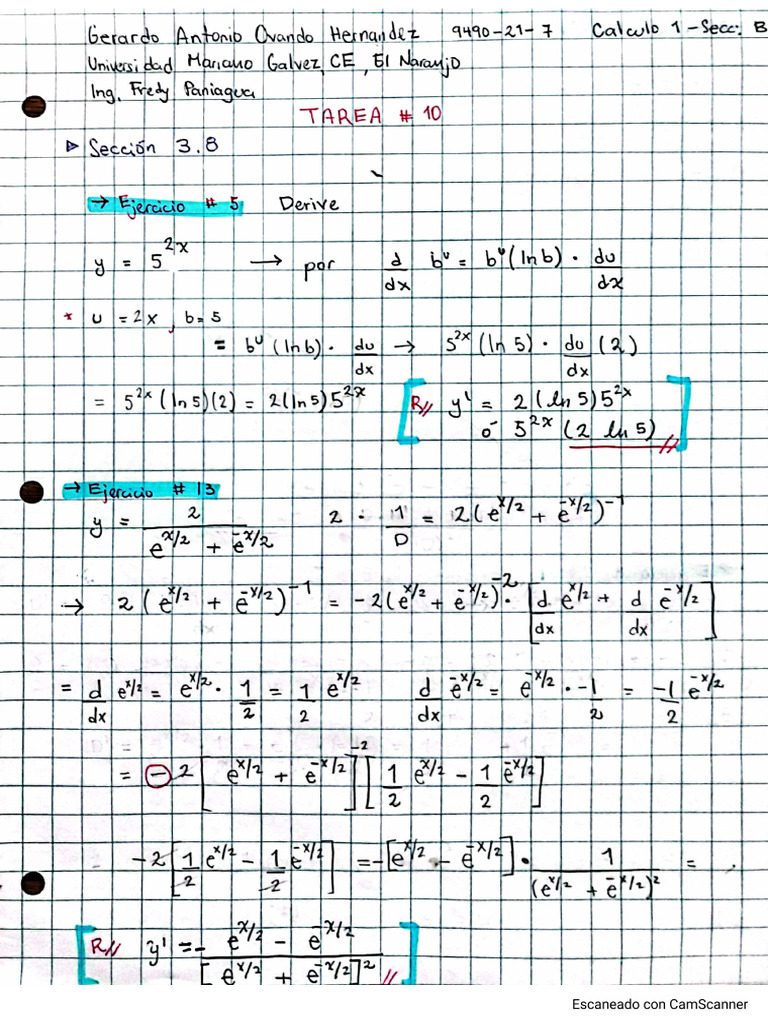 Gerardo Antonio Ovando Hernandez 9490-21-7 Calculo 1 - Secc: B
Universidad Mariano Galvez, CE, El Naranjo
Ing. Fredy Paniagua
TAREA # 10
▷ Sección 3.8
→ Ejercicio # 5 Derive
y = 5^{2x} → por d/dx b^u = b^u (ln b) · du/dx
* u = 2x, b = 5
= b^u (ln b) · du/dx → 5^{2x} (ln 5) · du/dx (2)
= 5^{2x} (ln 5)(2) = 2(ln 5)5^{2x} [R// y' = 2(ln 5)5^{2x}
ó 5^{2x} (2 ln 5)//]
→ Ejercicio # 13
y = 2/(e^{x/2} + e^{-x/2}) 2 · 1/D = 2(e^{x/2} + e^{-x/2})^{-1}
→ 2(e^{x/2} + e^{-x/2})^{-1} = -2(e^{x/2} + e^{-x/2})^{-2} · [d/dx e^{x/2} + d/dx e^{-x/2}]
= d/dx e^{x/2} = e^{x/2} · 1/2 = 1/2 e^{x/2} d/dx e^{-x/2} = e^{-x/2} · -1/2 = -1/2 e^{-x/2}
= -2[e^{x/2} + e^{-x/2}]^{-2} [1/2 e^{x/2} - 1/2 e^{-x/2}]
-2[1/2 e^{x/2} - 1/2 e^{-x/2}] = -[e^{x/2} - e^{-x/2}] · 1/(e^{x/2} + e^{-x/2})^2 =
[R// y' = - (e^{x/2} - e^{-x/2})/[e^{x/2} + e^{-x/2}]^2 //]
Escaneado con CamScanner